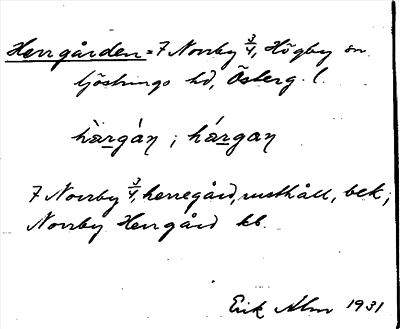 Herrgården = 7 Norrby 3/4, Högby sn
Göstrings hd, Österg. l.
hærgán ; hǽrgan
7 Norrby 3/4, herregård, rusthåll, bek;
Norrby Herrgård kb.
Erik Alm 1931